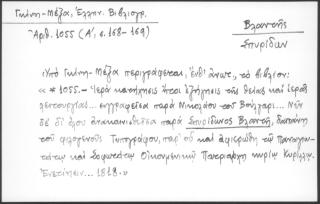 Γκίνη-Μέξα, Ἑλλην. Βιβλιογρ.
Ἀρθ. 1055 (Α', σ. 168-169)
Βλαντῆς
Σπυρίδων
«Ὑπὸ Γκίνη-Μέξα περιγράφεται, ἔνθ' ἄνωτ., τὸ βιβλίον:
« * 1055. - Ἱερὰ κατήχησις ἤτοι ἐξήγησις τῆς θείας καὶ ἱερᾶς
λειτουργίας... συγγραφεῖσα παρὰ Νικολάου τοῦ Βούλγαρι... Νῦν
δὲ δὶ ὅλου ἀνακαινισθεῖσα παρὰ Σπυρίδωνος Βλαντῆ, δαπάνῃ
τοῦ φιλογενοῦς Τυπογράφου, παρ' οὗ καὶ ἀφιερώθη τῷ Παναγιω-
τάτῳ καὶ Σοφωτάτῳ Οἰκουμενικῷ Πατριάρχῃ κυρίῳ Κυρίλλῳ.
Ἐνετίησιν... 1818.»